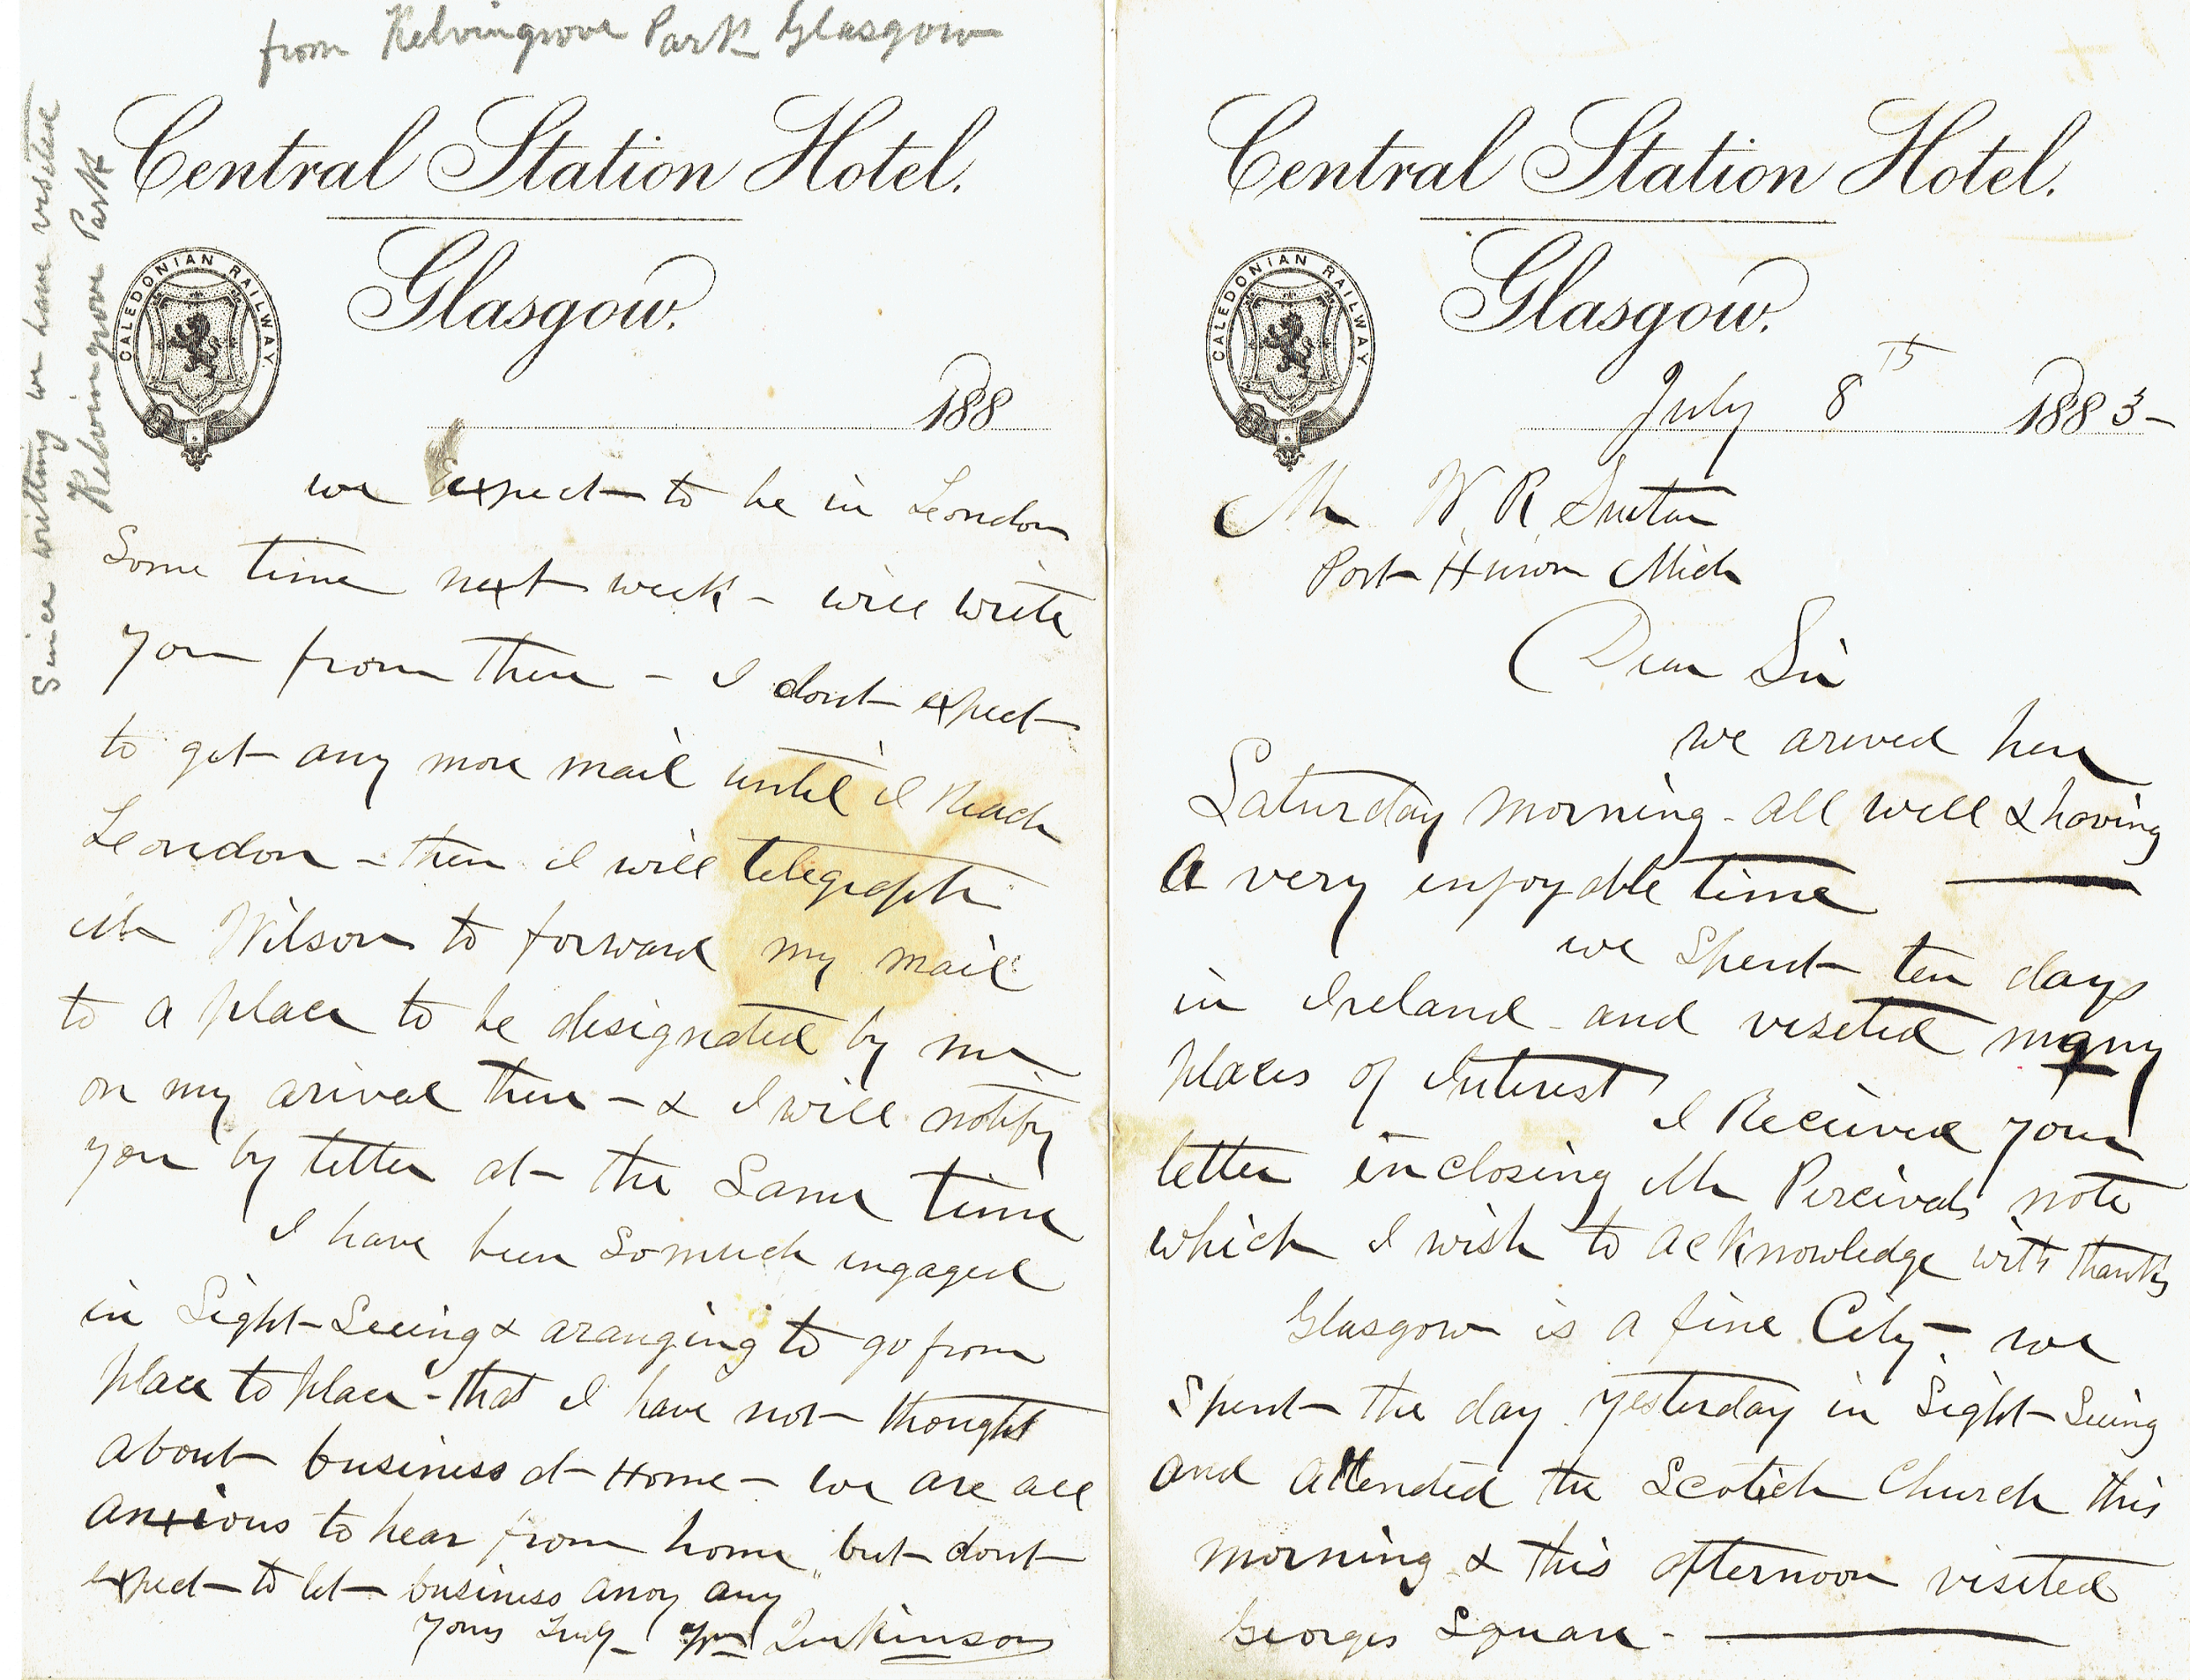 Central Station Hotel.
Glasgow.
CALEDONIAN RAILWAY.
July 8th 1883-
Mr W. R. Sutton
Port Huron Mich
Dear Sir
we arived here
Saturday morning - all well & having
a very enjoyable time
we Spent ten days
in Ireland - and viseted many
places of Interest I Received your
letter inclosing Mr Percivals note
which I wish to acknowledge with thanks
Glasgow is a fine City - we
Spent the day yesterday in Sight-Seeing
and attended the Scotish Church this
morning & this afternoon viseted
Georges Square -
from Kelvingrove Park Glasgow
Central Station Hotel.
Glasgow.
CALEDONIAN RAILWAY.
188
we Expect to be in London
Some time next week - will write
you from there - I dont expect
to get any more mail until I Reach
London - then I will telegraph
Mr Wilson to forward my mail
to a place to be designated by me
on my arival there - & I will notify
you by letter at the Same time
I have been So much engaged
in Sight-Seeing & aranging to go from
place to place - that I have not thought
about business at Home - we are all
anxious to hear from home, but dont
expect to let business anoy any
Yours Truly - Wm Jenkinson
Since writting we have visited
Kelvingrove Park